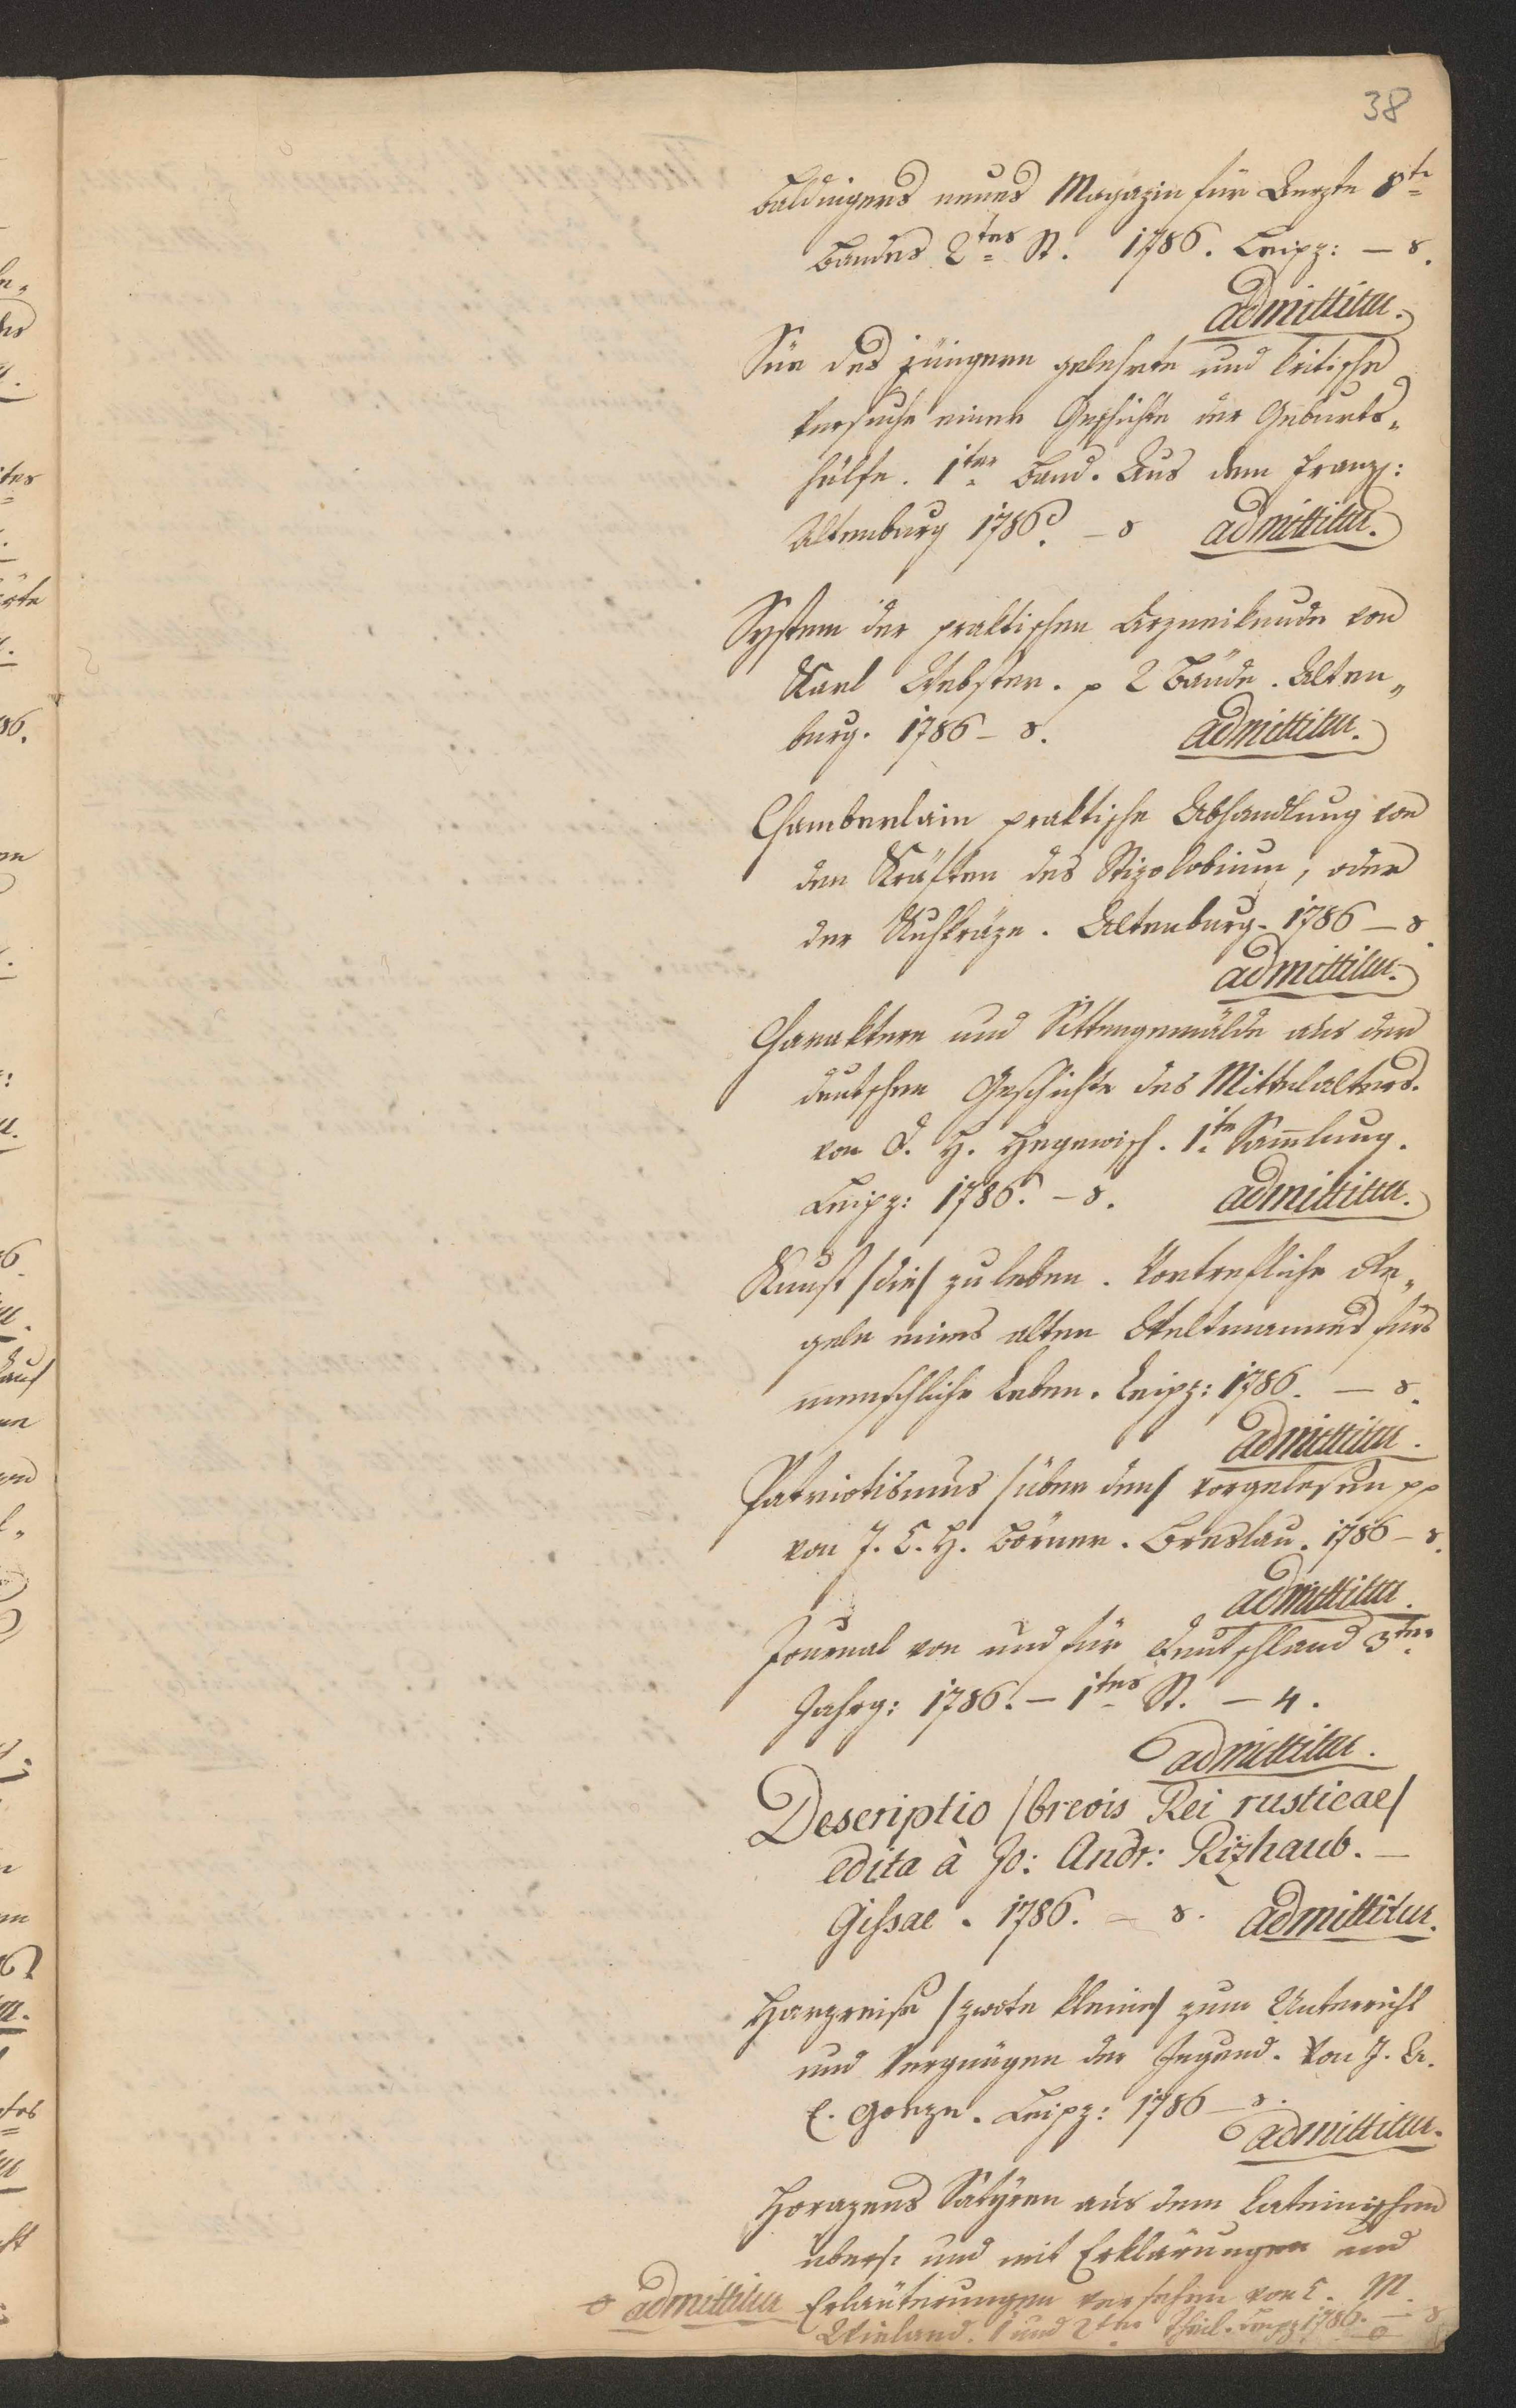 38
Baldingers neues Magazin für Aerzte 8te
Bandes 2tes St. 1786. Leipz: – 8.
admittitur.
Süe des jüngern gelehrte und kritische
Versuche einer Geschichte der Geburts„
hülfe. 1ter Band. Aus dem Franz:
Altenburg 1786. – 8 admittitur.
System der praktischen Arzneikunde von
Karl Webster. p 2 Bände. Alten„
burg. 1786 – 8. admittitur.
Chamberlain praktische Abhandlung von
den Kräften des Stizolobium, oder
der Kuhkräze. Altenburg. 1786 – 8.
admittitur.
Charaktere und Sittengemälde aus der
deutschen Geschichte des Mittelalters.
von D. H. Hegewisch. 1te Sammlung.
Leipz: 1786. – 8. admittitur.
Kunst /die/ zu leben. Vortrefliche Re„
geln eines alten Weltmannes fürs
menschliche Leben. Leipz: 1786. – 8.
admittitur.
Patriotismus /über den/ vorgelesen pp
von J. C. H. Börner. Breslau. 1786 – 8.
admittitur.
Journal von und für Deutschland 3ter
Jahrg: 1786. – 1tes St. – 4.
admittitur.
Descriptio /brevis Rei rusticae/
edita à Jo: Andr: Rizhaub. –
Gissae. 1786. – 8. admittitur.
Harzreise /zwote kleine/ zum Unterricht
und Vergnügen der Jugend. Von J. A.
E. Goeze. Leipz: 1786 – 8.
admittitur.
Horazens Satyren aus dem Lateinischen
übers: und mit Erklärungen und
admittitur Erläuterungen versehen von C. M.
Wieland. 1 und 2ter Theil. Leipz 1786. – 8